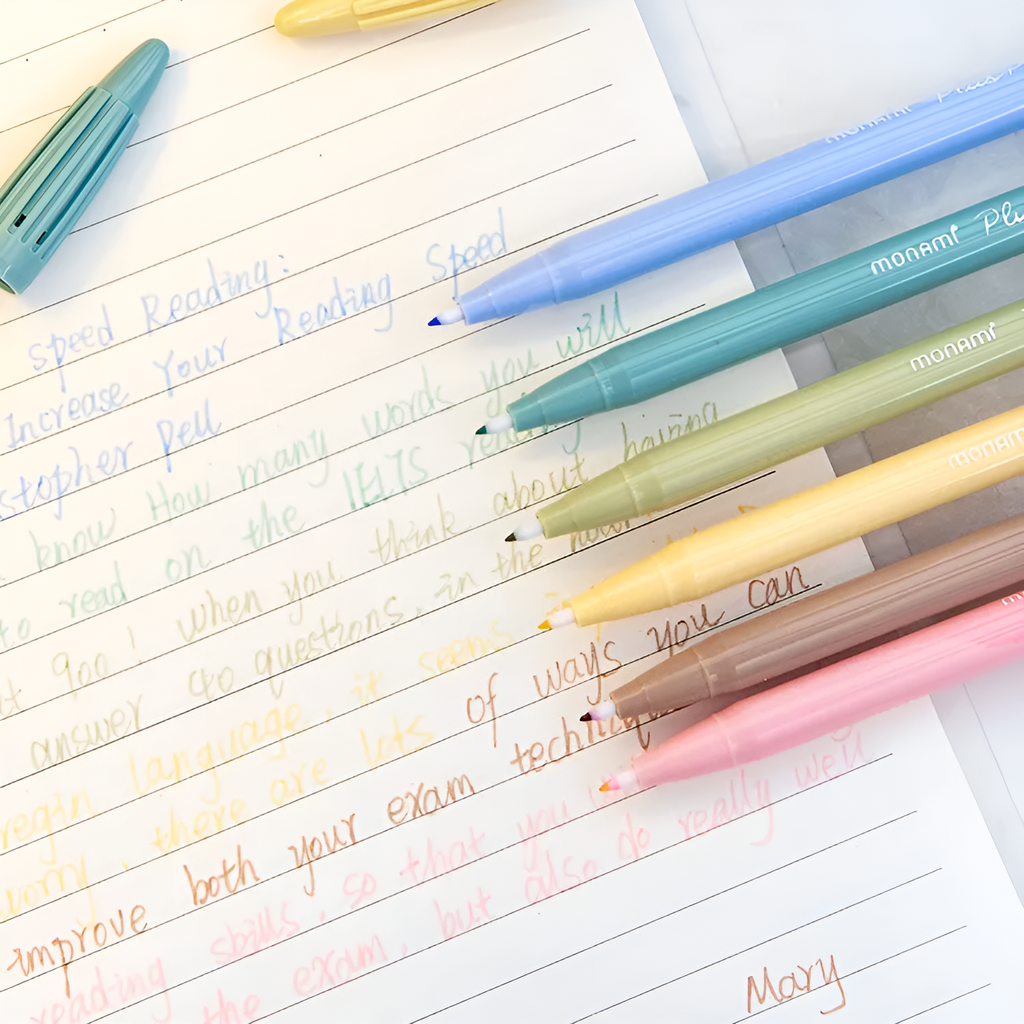 speed Reading:
Increase Your Reading Speed
stopher Pell
know How many words you will
to read on the IELTS reading
at 900! when you think about having
answer 40 questions, in the
language, it seems
worry, there are lots of ways you can
improve both your exam
reading skills, so that you
the exam, but also do really well
Mary
monami Plus
monami Plu
monami
monami